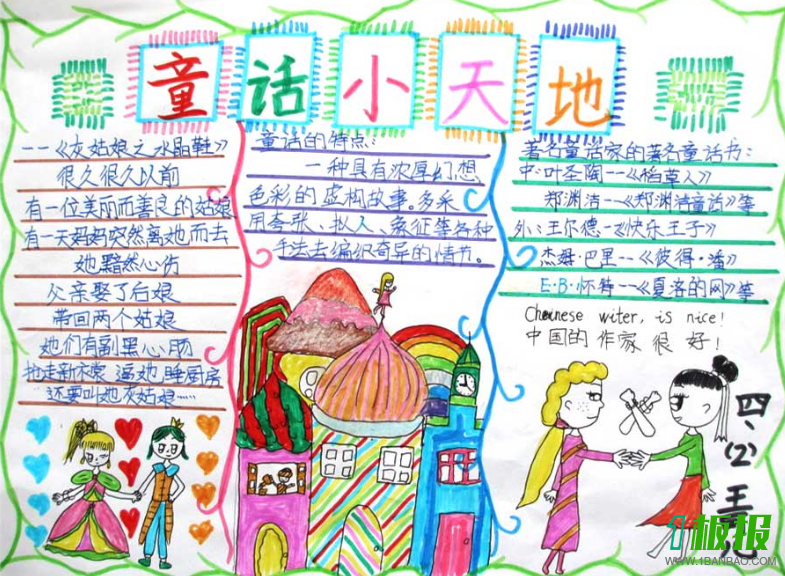 童话小天地
--《灰姑娘之水晶鞋》
很久很久以前
有一位美丽而善良的姑娘
有一天妈妈突然离她而去
她黯然心伤
父亲娶了后娘
带回两个姑娘
她们有副黑心肠
抢走新衣裳 逼她睡厨房
还要叫她灰姑娘……
童话的特点:
一种具有浓厚幻想
色彩的虚构故事。多采
用夸张、拟人、象征等各种
手法去编织奇异的情节。
著名童话家的著名童话书:
中:叶圣陶--《稻草人》
郑渊洁--《郑渊洁童话》等
外:王尔德-《快乐王子》
杰姆·巴里--《彼得·潘》
E·B·怀特--《夏洛的网》等
Cheinese witer, is nice!
中国的作家很好!
四、(2) 王
1板报
WWW.1BANBAO.COM